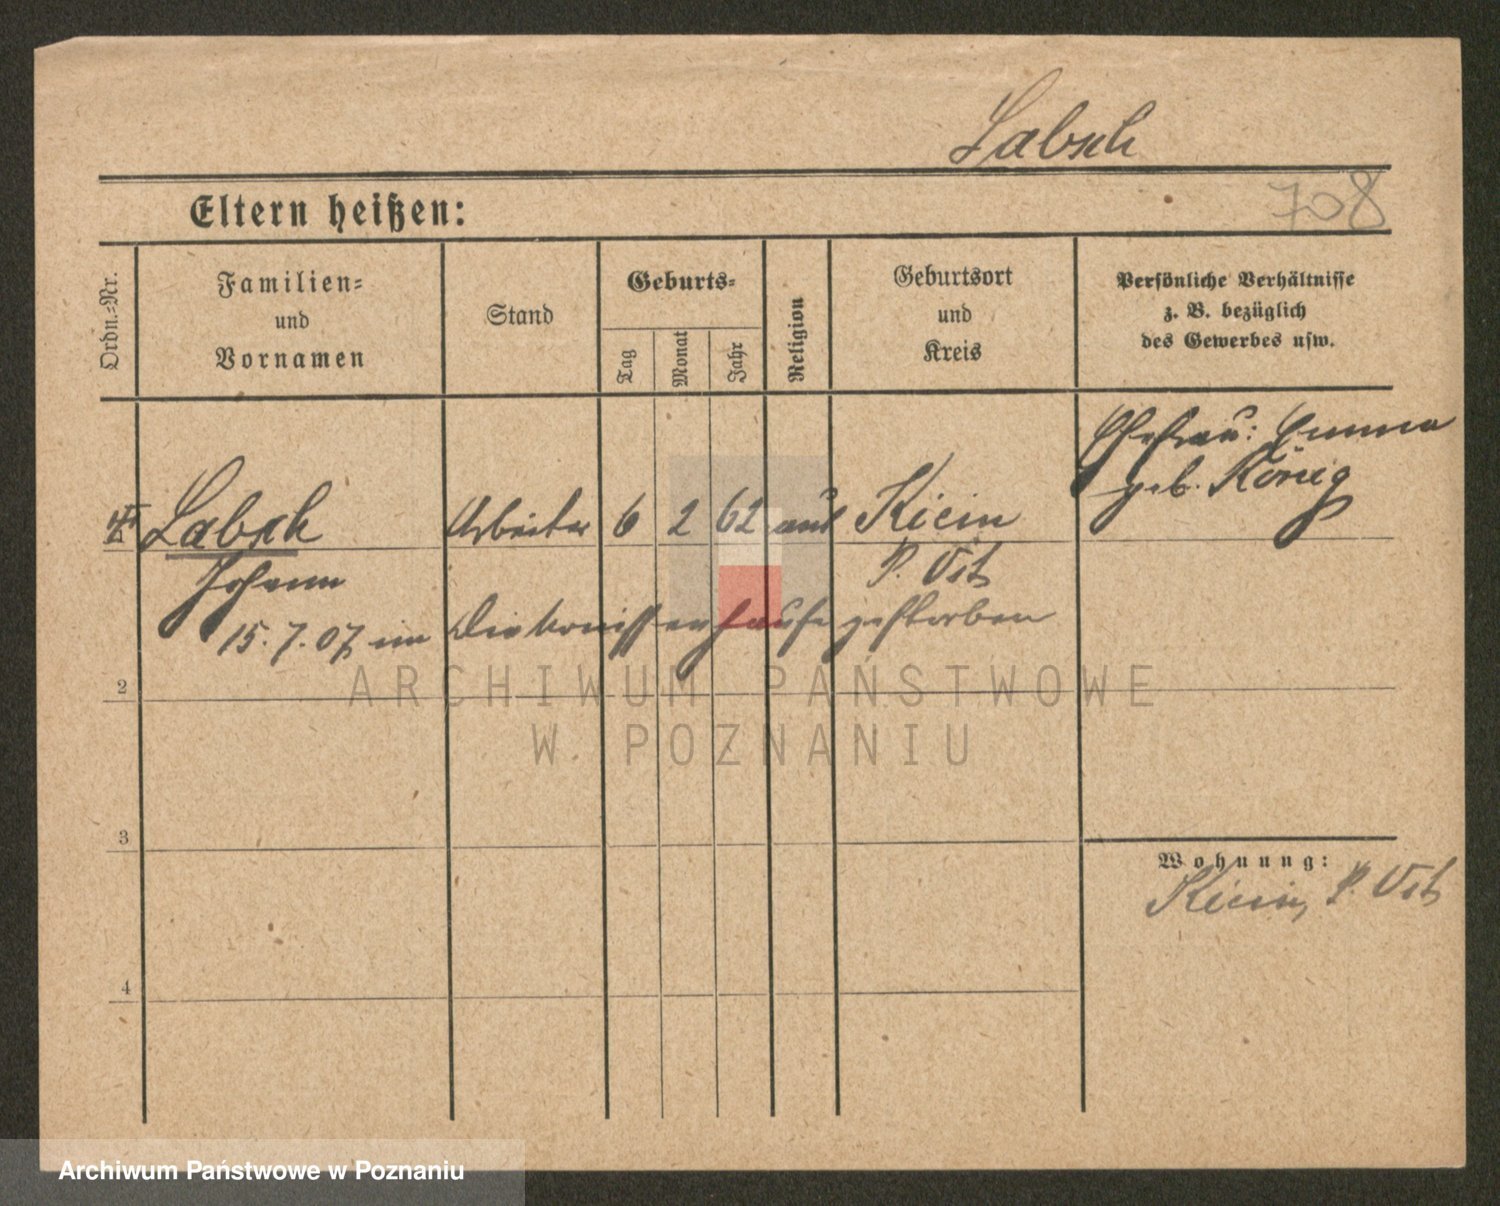 Labsch
708
Eltern heißen:
Ordn.-Nr.
Familien-
und
Vornamen
Stand
Geburts-
Tag
Monat
Jahr
Religion
Geburtsort
und
Kreis
Persönliche Verhältnisse
z. B. bezüglich
des Gewerbes usw.
Ehefrau: Emma
geb. König
Labsch Arbeiter 6 2 62 Kicin
Johann P. Ost
15.7.07 im Diakonissenhause gestorben
2
3
4
Wohnung:
Kicin, P. Ost
ARCHIWUM PAŃSTWOWE
W POZNANIU
Archiwum Państwowe w Poznaniu